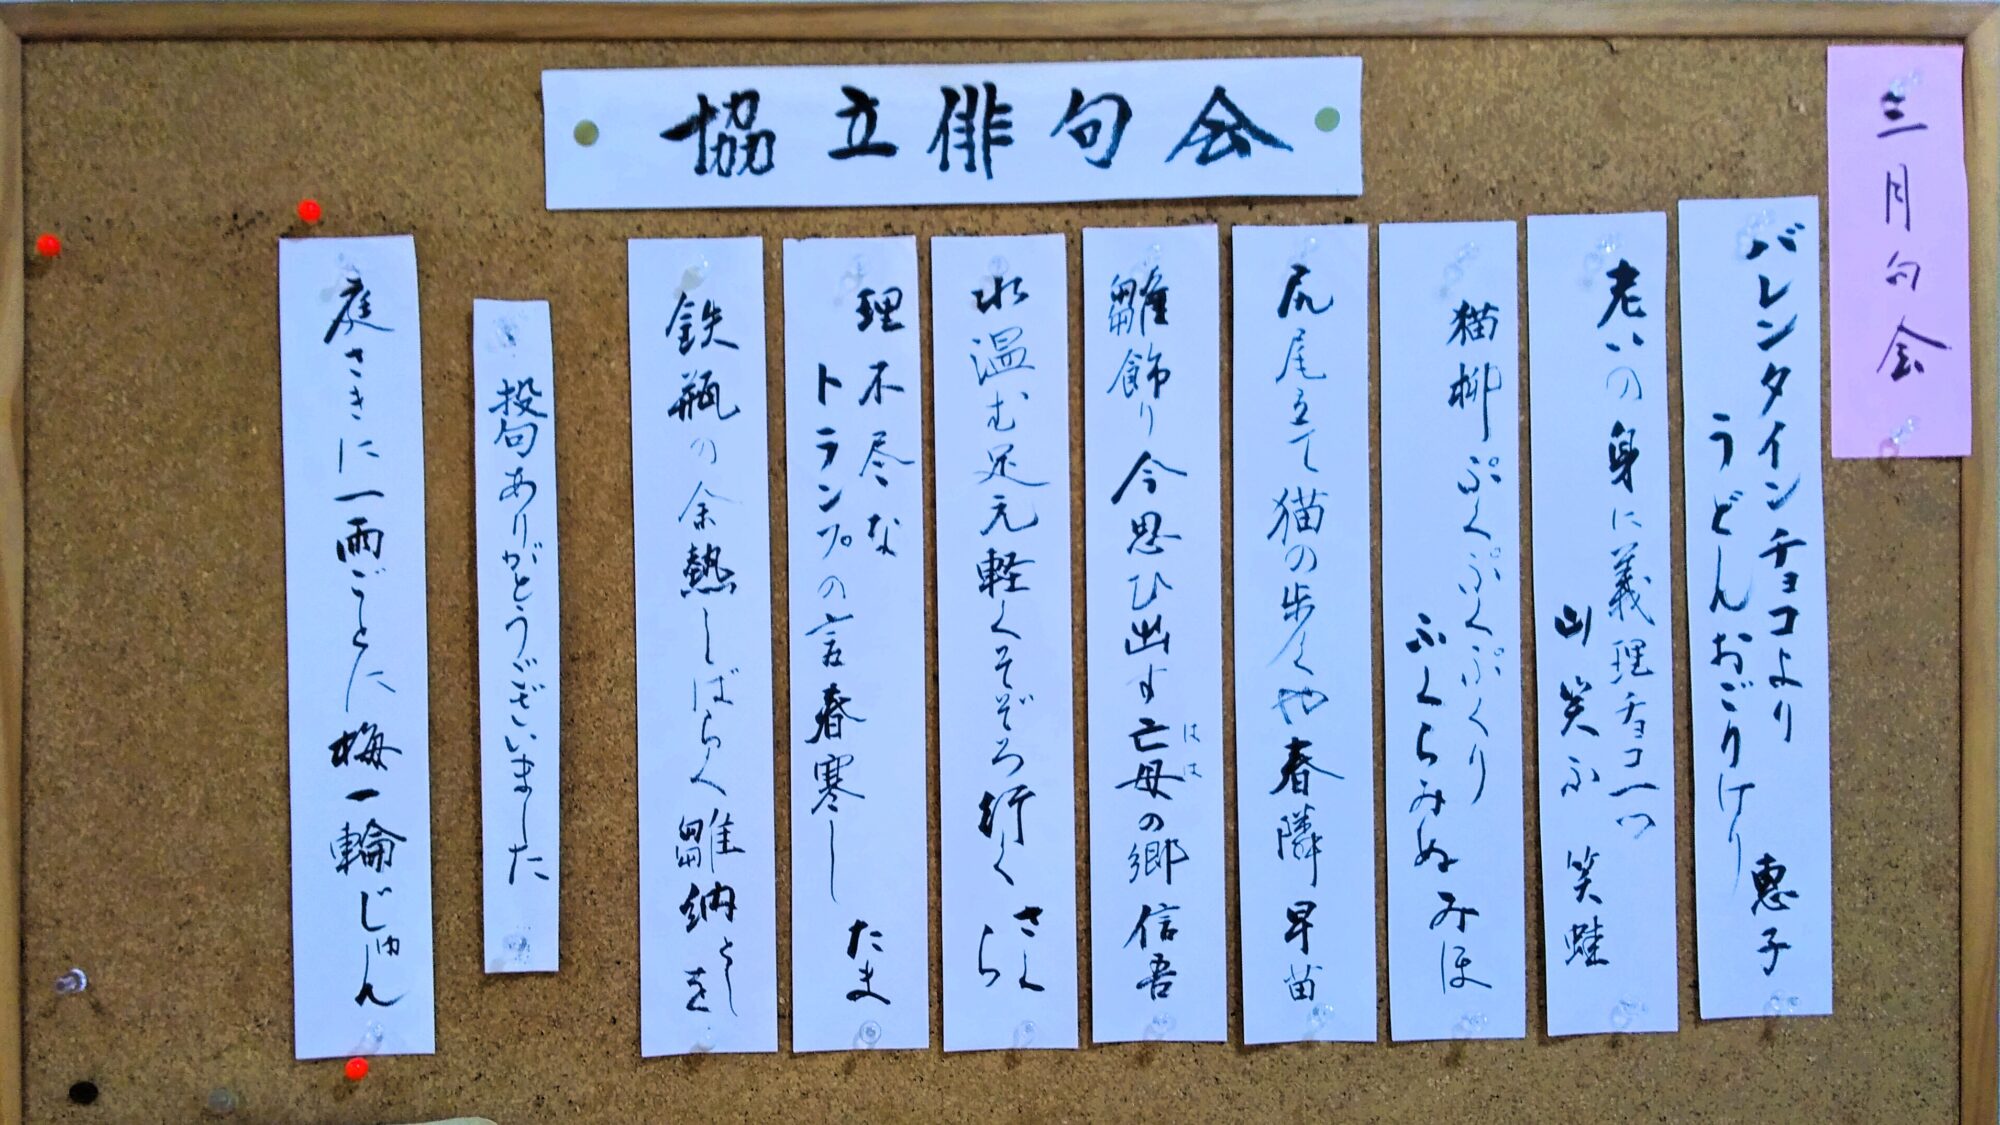 協立俳句会
三月句会
バレンタインチョコより
うどんおごりけり
恵子
老いの身に義理チョコ一つ
山笑ふ 笑蛙
猫柳ぷくぷくぷくり
ふくらみぬ みほ
尻尾立て猫の歩くや春隣 早苗
雛飾り今思ひ出す亡母の郷 信吾
はは
水温む足元軽くそぞろ行く さくら
理不尽な
トランプの言春寒し
たま
鉄瓶の余熱しばらく雛納 としを
投句ありがとうございました
庭さきに一雨ごとに梅一輪 じゅん